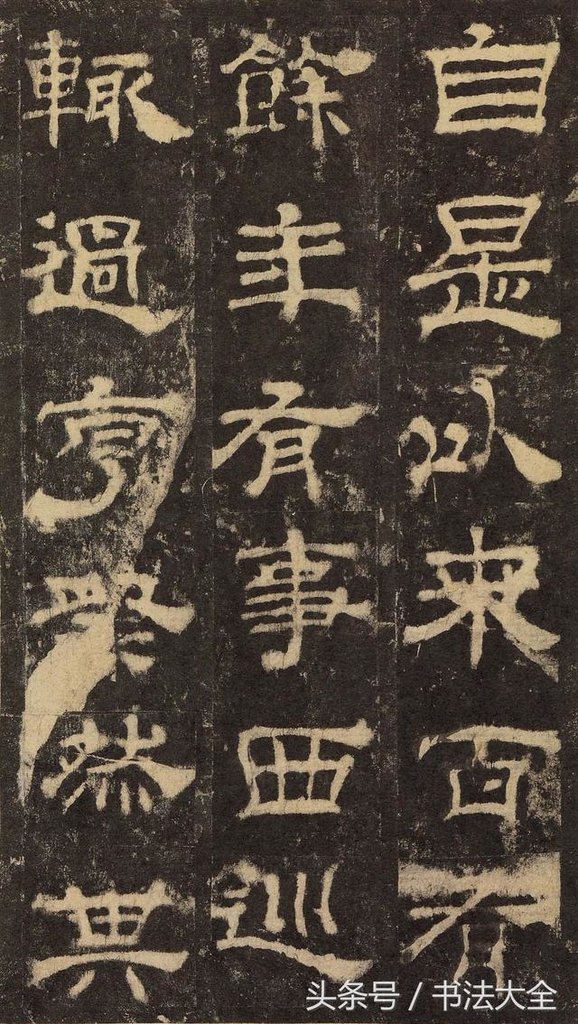 自是以來百有
餘年有事西巡
輒過亨祭然其
头条号 / 书法大全